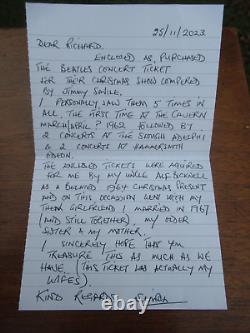 25/11/2023
DEAR RICHARD.
ENCLOSED AS, PURCHASED
THE BEATLES CONCERT TICKET
FOR THEIR CHRISTMAS SHOW COMPERED
BY JIMMY SAVILE.
I PERSONALLY SAW THEM 5 TIMES IN
ALL. THE FIRST TIME AT THE CAVERN
MARCH/APRIL? 1962 FOLLOWED BY
2 CONCERT AT THE SLOUGH ADELPHI
& 2 CONCERTS AT HAMMERSMITH
ODEON.
THE ENCLOSED TICKETS WERE AQUIRED
FOR ME BY MY UNCLE ALF BICKNELL
AS A BELATED 1964 CHRISTMAS PRESENT
AND ON THIS OCCASION WENT WITH MY
THEN GIRLFRIEND (I MARRIED IN 1967
(AND STILL TOGETHER), MY OLDER
SISTER & MY MOTHER.
I SINCERELY HOPE THAT YOU
TREASURE THIS AS MUCH AS WE
HAVE (THIS TICKET WAS ACTUALLY MY
WIFES).
KIND REGARDS